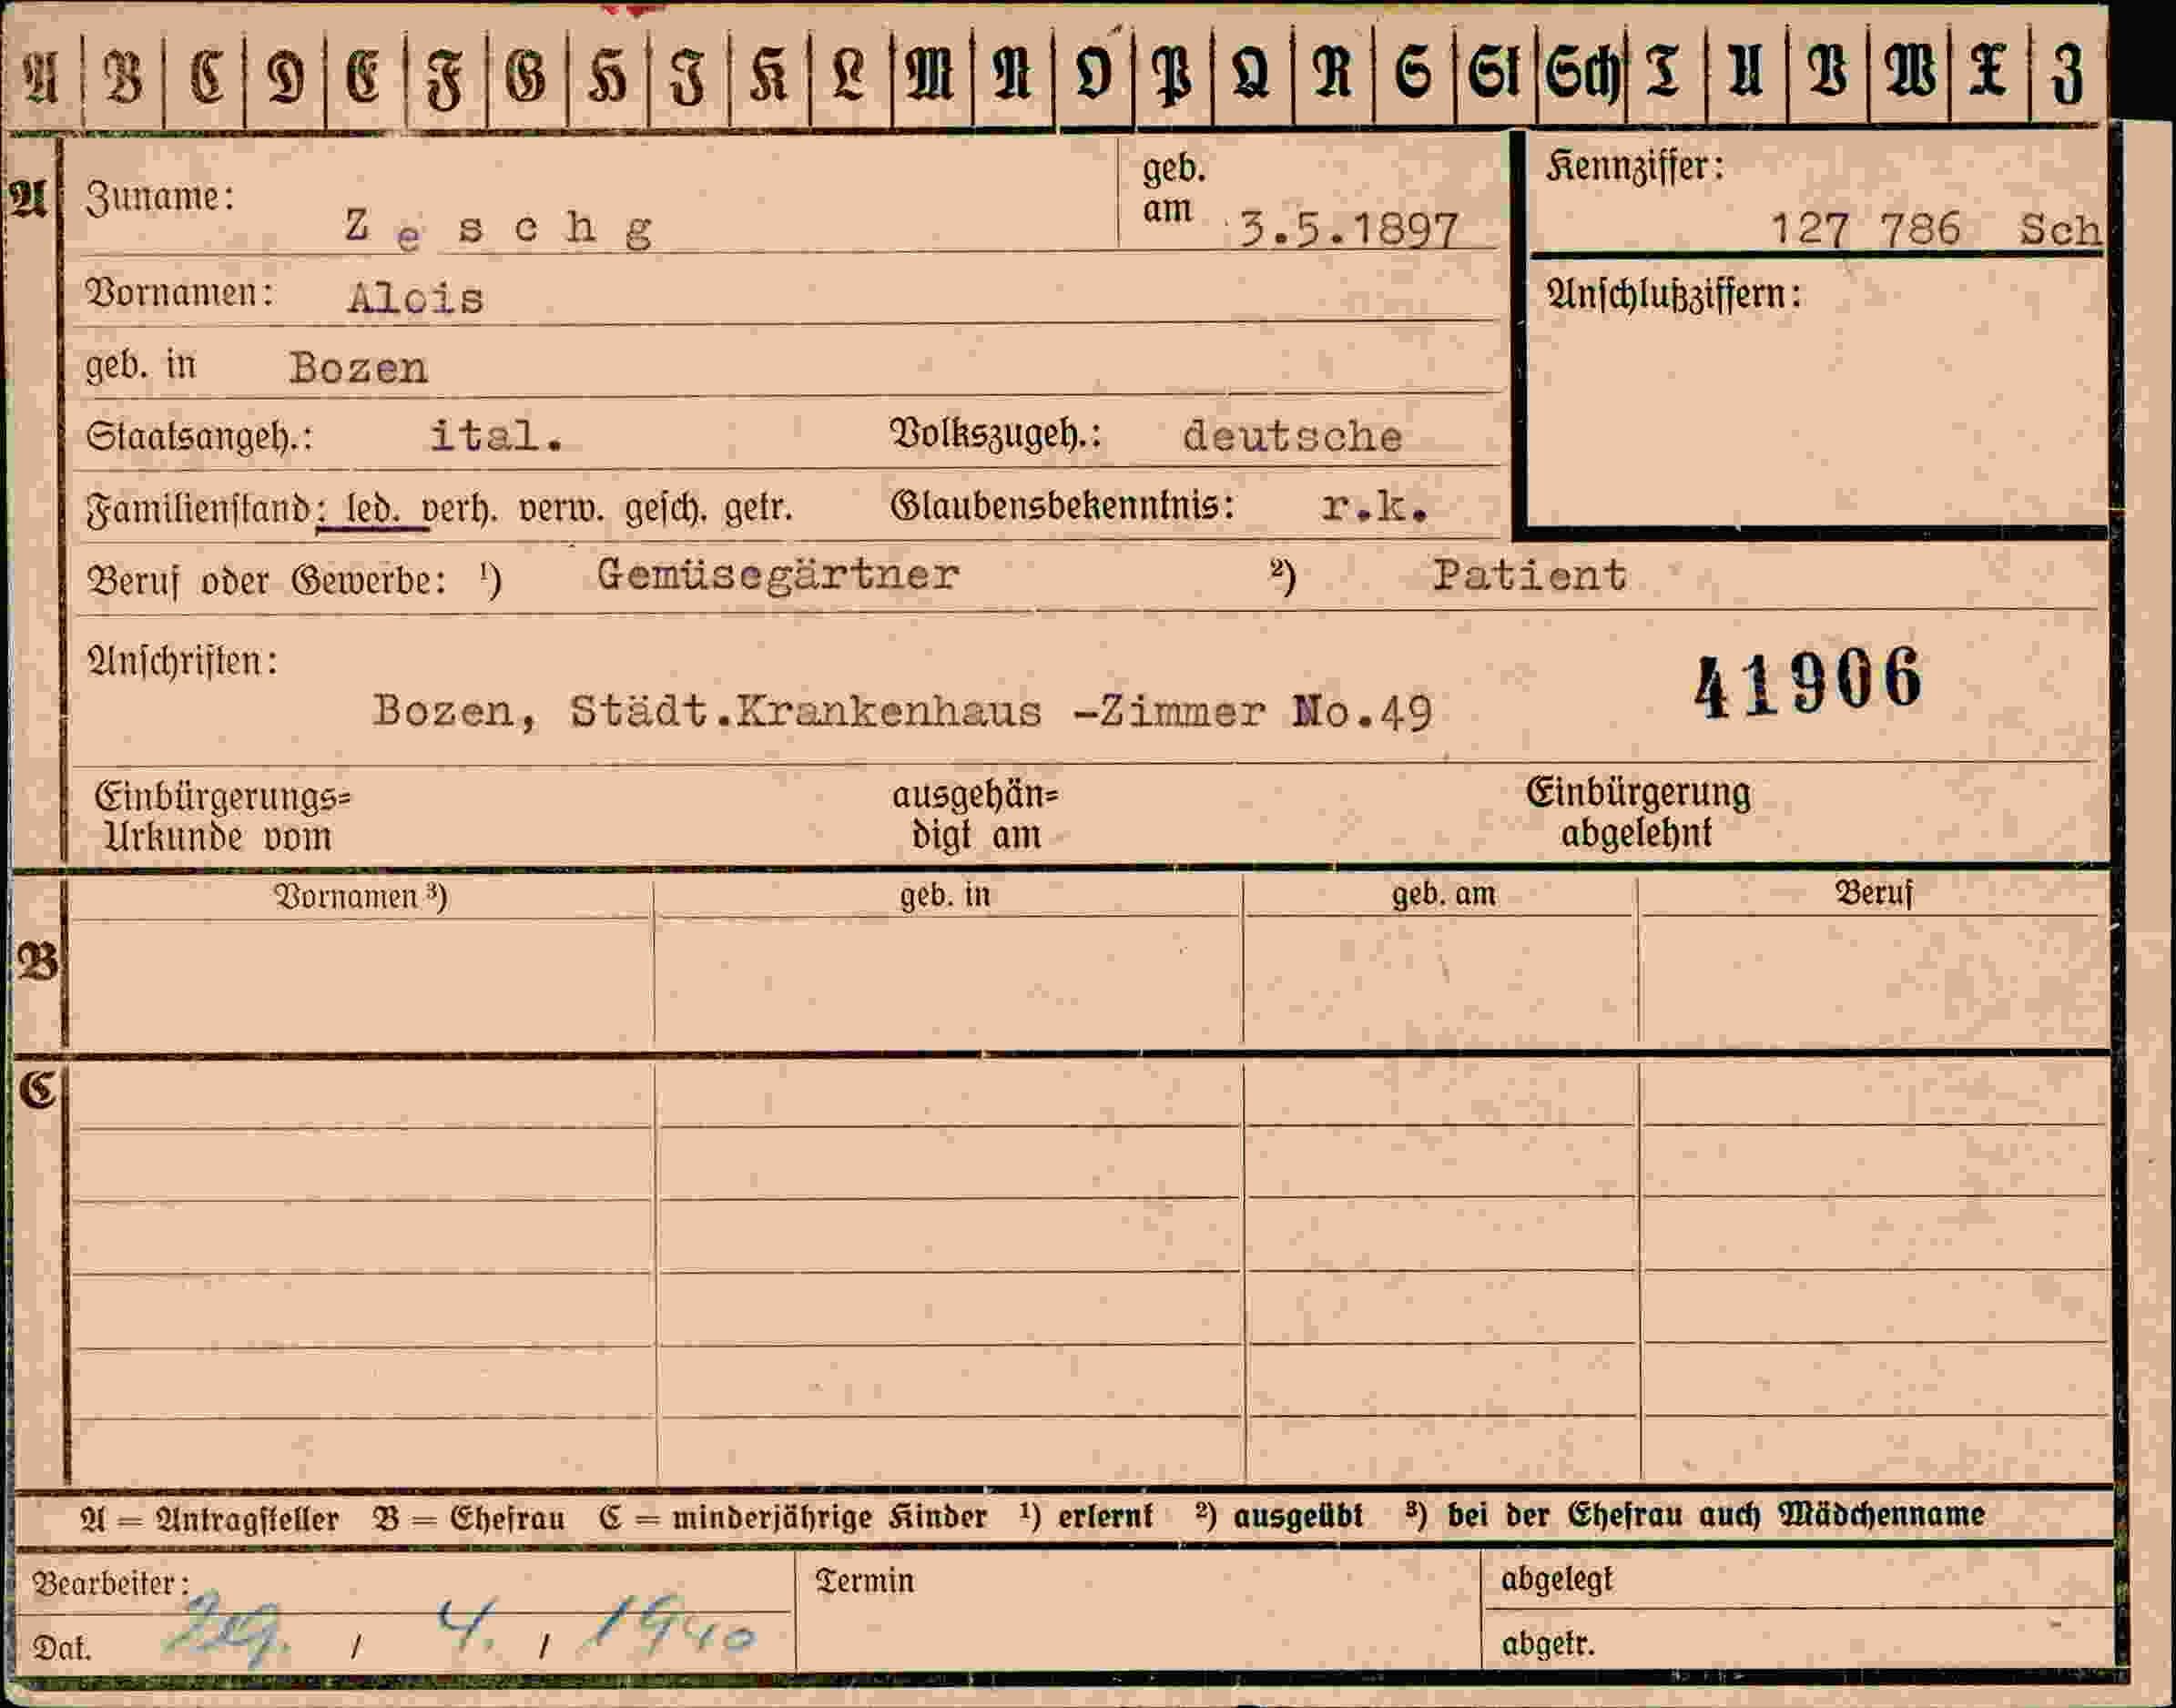 A B C D E F G H I K L M N O P Q R S St Sch T U V W X Z
A
Zuname: Zeschg
geb. am 3.5.1897
Kennziffer: 127 786 Sch
Vornamen: Alois
Anschlußziffern:
geb. in Bozen
Staatsangeh.: ital. Volkszugeh.: deutsche
Familienstand: led. verh. verw. gesch. getr. Glaubensbekenntnis: r.k.
Beruf oder Gewerbe: ¹) Gemüsegärtner ²) Patient
Anschriften:
41906
Bozen, Städt.Krankenhaus -Zimmer No.49
Einbürgerungs= ausgehän= Einbürgerung
Urkunde vom digt am abgelehnt
Vornamen ³) geb. in geb. am Beruf
B
C
A = Antragsteller B = Ehefrau C = minderjährige Kinder ¹) erlernt ²) ausgeübt ³) bei der Ehefrau auch Mädchenname
Bearbeiter: Termin abgelegt
Dat. 29. / 4. / 1940 abgetr.